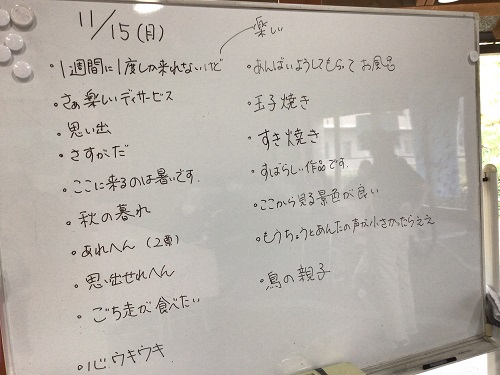 11/15(月)
・1週間に1度しか来れないけど
・さぁ楽しいデイサービス
・思い出
・さすがだ
・ここに来るのは暑いです。
・秋の暮れ
・あれへん(2票)
・思い出せれへん
・ごち走が食べたい
・心ウキウキ
楽しい
・あんばいようしてもらって お風呂
・玉子焼き
・すき焼き
・すばらしい作品です。
・ここから見る景色が良い
・もうちょっとあんたの声が小さかったらええ
・鳥の親子